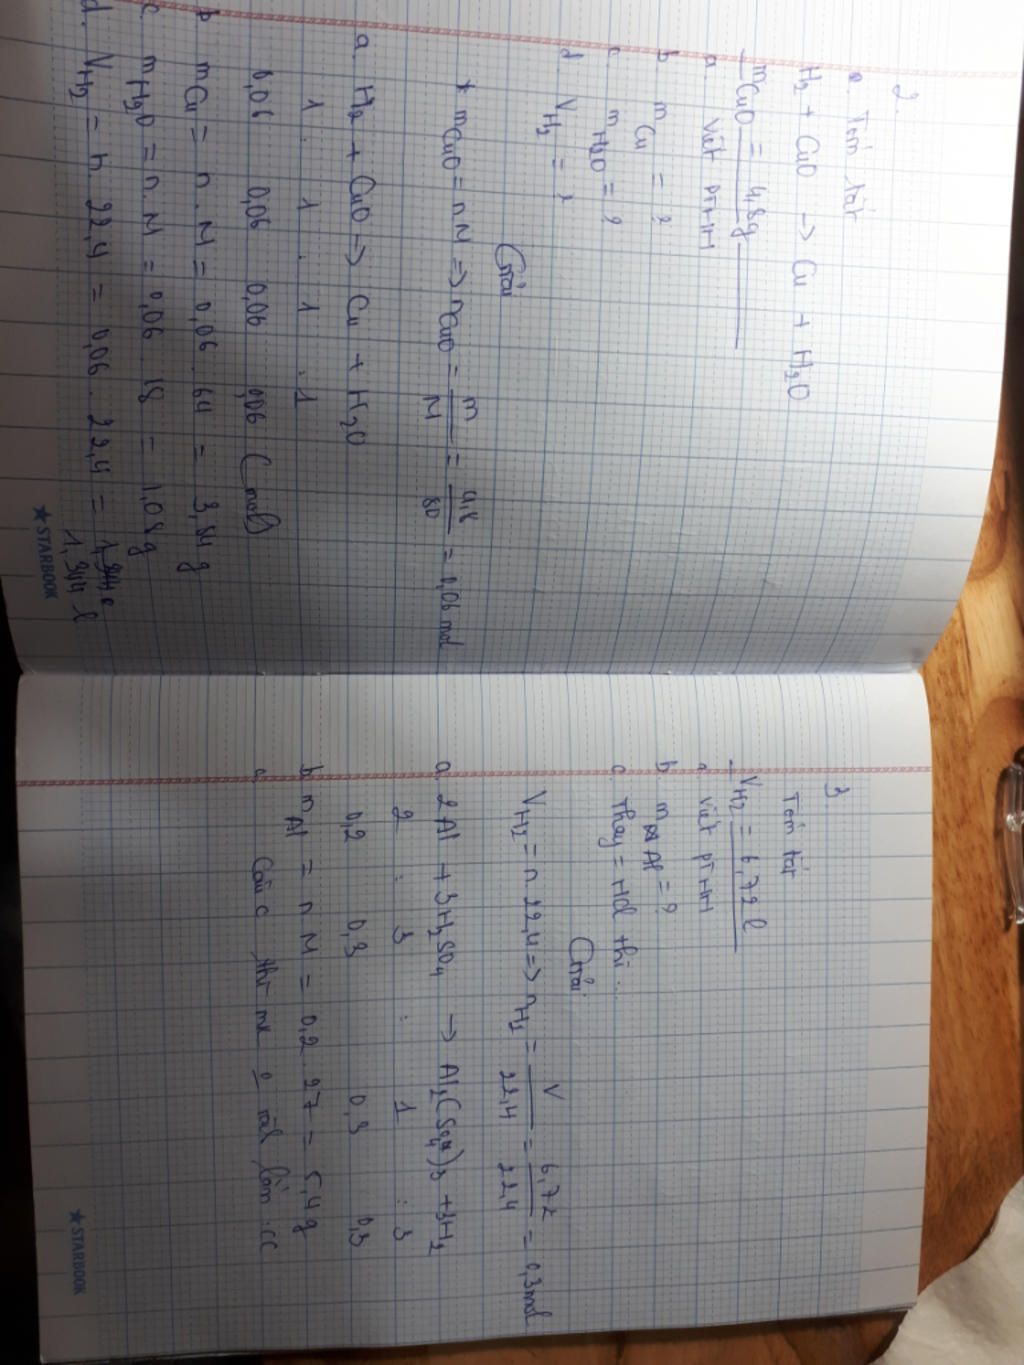 2.
a. Tóm tắt
H₂ + CuO → Cu + H₂O
mCuO = 4,8g
a. Viết PTHH
b. mCu = ?
c. mH₂O = ?
d. VH₂ = ?
Giải
* mCuO = n.M => nCuO = m/M = 4,8/80 = 0,06 mol
a. H₂ + CuO → Cu + H₂O
1 . 1 . 1 . 1
0,06 0,06 0,06 0,06 (mol)
b mCu = n.M = 0,06.64 = 3,84 g
c mH₂O = n.M = 0,06 18 = 1,08g
d. VH₂ = n 22,4 = 0,06.22,4 = 1,344 l
1,344 l
★ STARBOOK
3
Tóm tắt
VH₂ = 6,72 l
a. Viết PTHH
b. m Al = ?
c. Thay = HCl thì...
Giải
VH₂ = n 22,4 => nH₂ = V/22,4 = 6,72/22,4 = 0,3mol
a. 2Al + 3H₂SO₄ → Al₂(SO₄)₃ + 3H₂
2 : 3 : 1 : 3
0,2 0,3 0,3 0,3
b. mAl = n M = 0,2.27 = 5,4g
c. Câu c thì me o làm :cc
★ STARBOOK